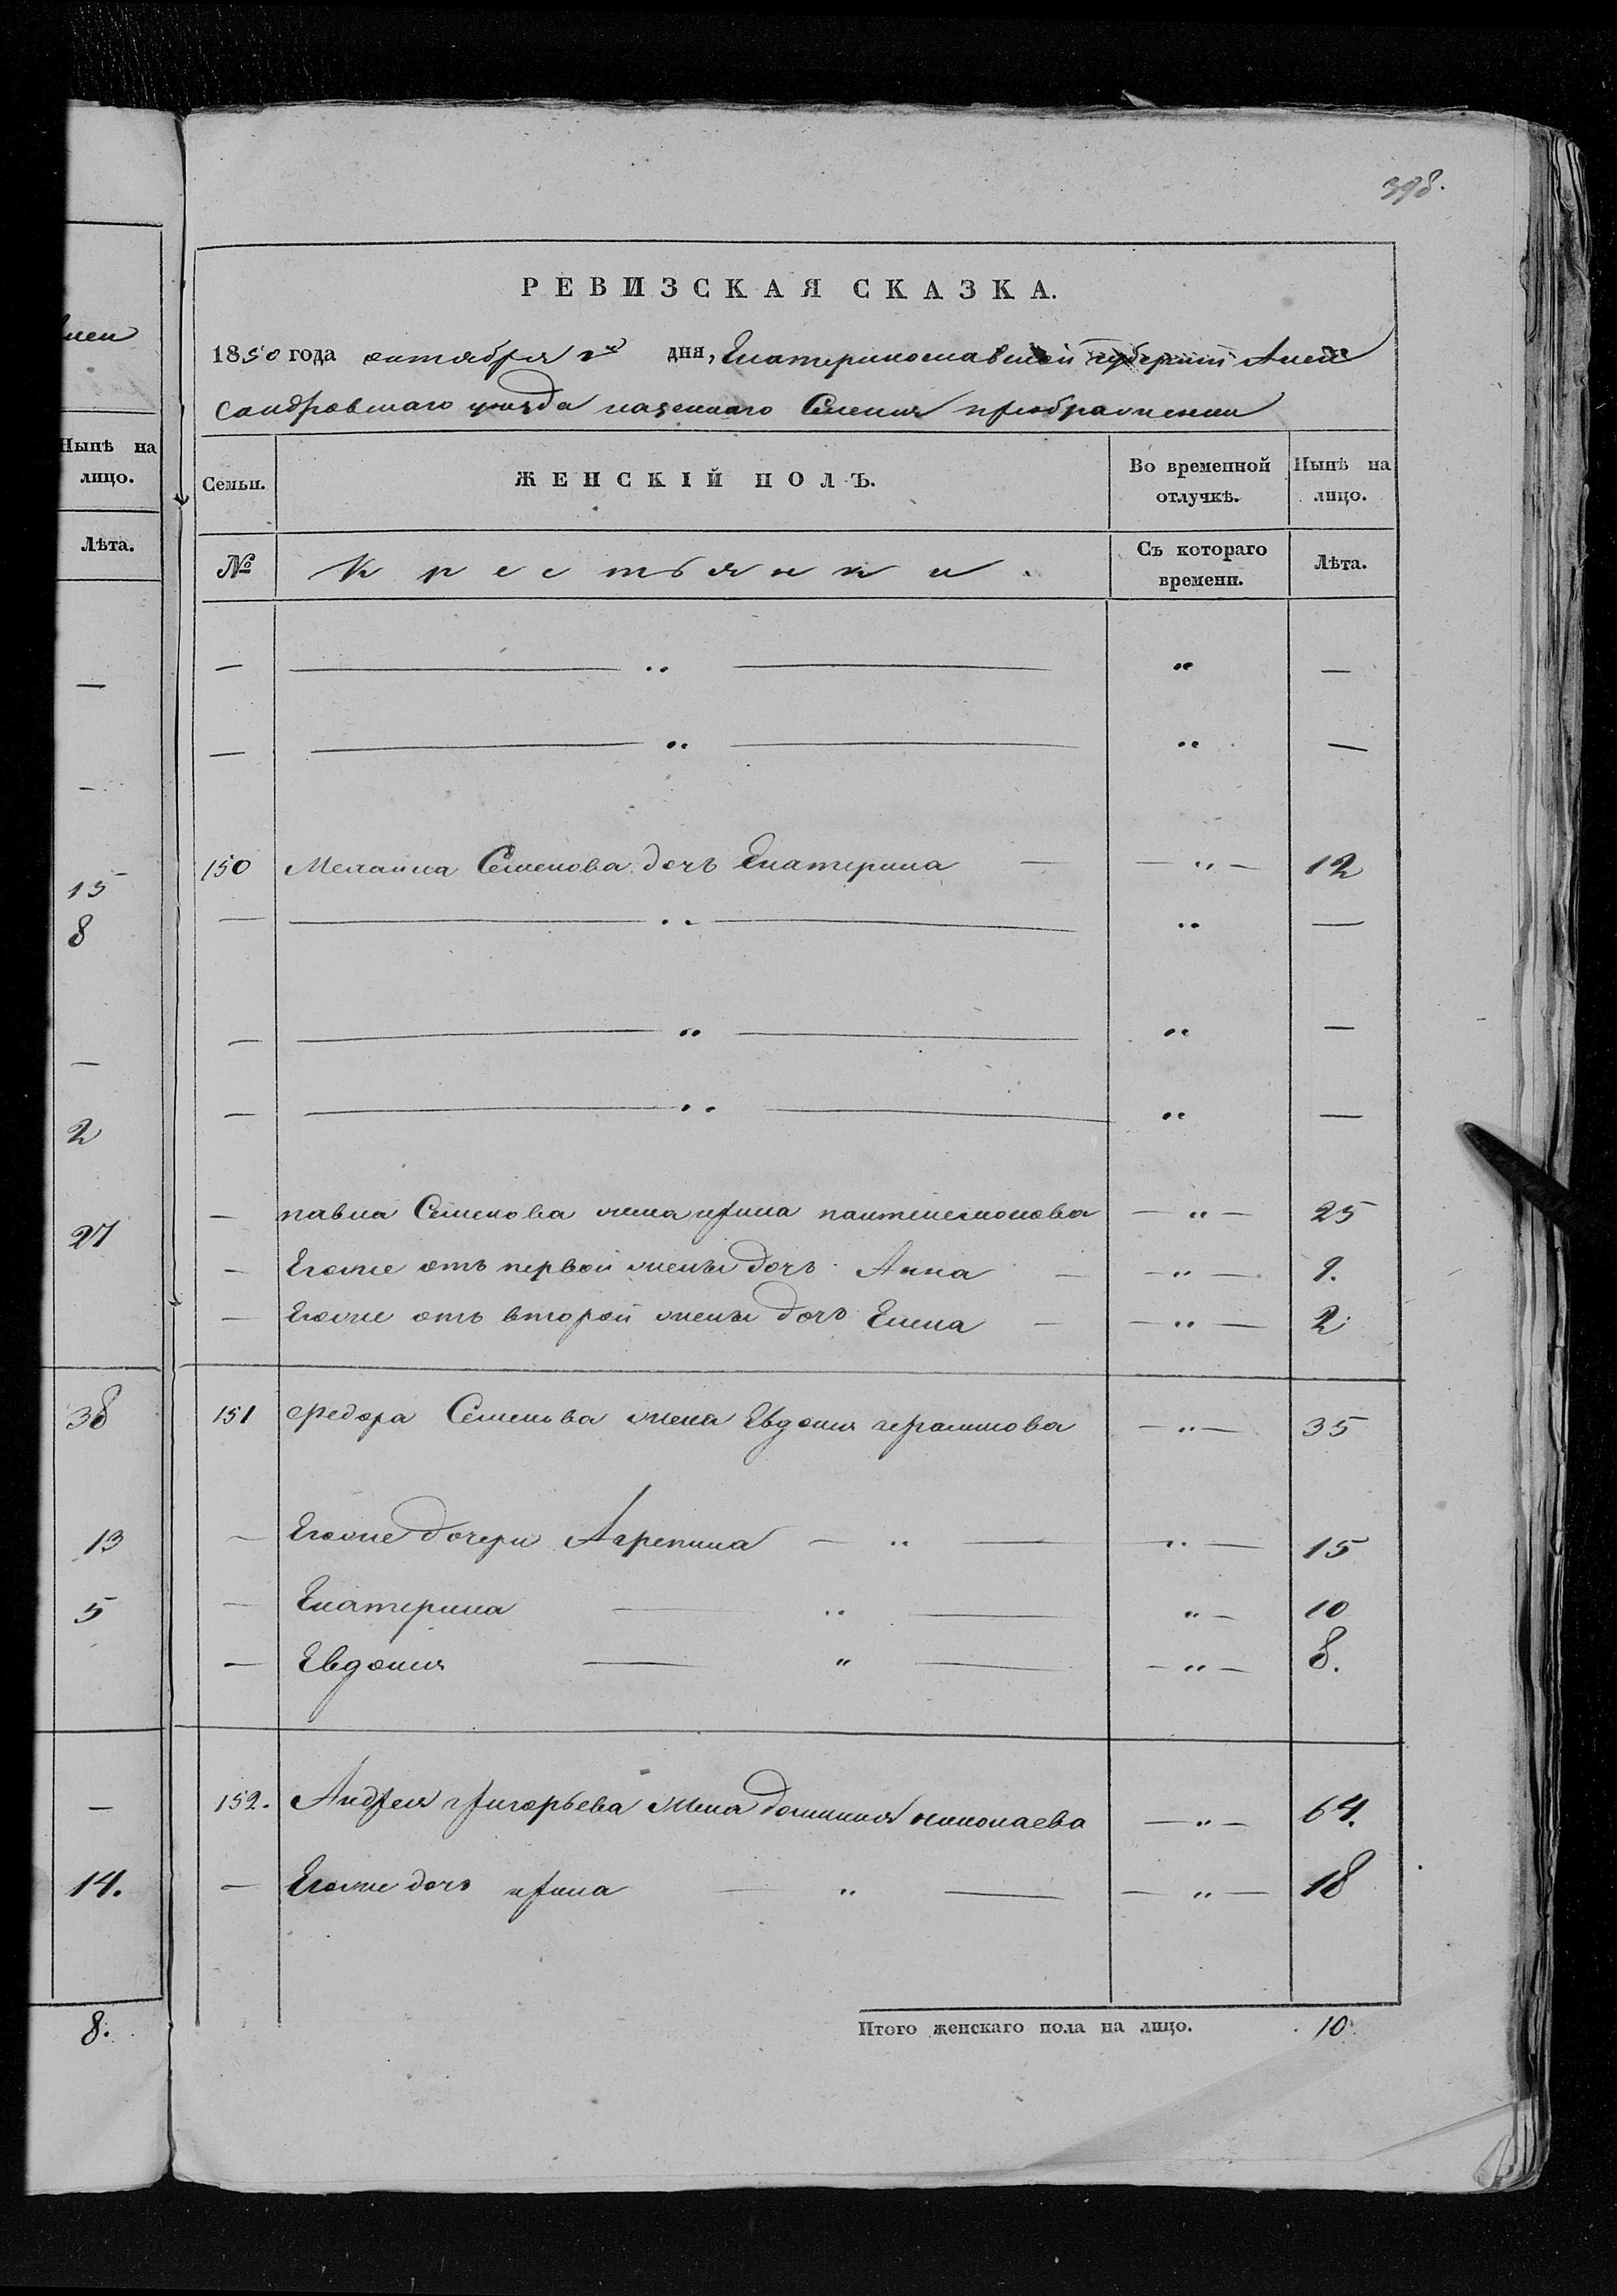 398.
РЕВИЗСКАЯ СКАЗКА.
1850 года октября дня, Екатеринославской губернiи Алек
сандровскаго уѣзда казеннаго Селенiя преображенки
Нынѣ на
лицо.
Лѣта.
Семьи.
ЖЕНСКIЙ ПОЛЪ.
Во временной
отлучкѣ.
Нынѣ на
лицо.
№
Крестьянки.
Съ котораго
времени.
Лѣта.
— — „ — „ —
— — „ — „ —
15
150 Семенова дочь Екатерина — — „ — 12
8
— — „ — „ —
— — „ — „ —
— — „ — „ —
2
27
— павла Семенова жена ирина пантелемонова — „ — 25
— Егоже отъ первой жены дочь Анна — — „ — 9.
— Егоже отъ второй жены дочь Елена — — „ — 2
38
151 федора Семенова жена Евдокия герасимова — „ — 35
13
— Егоже дочери Агрепина — „ — „ — 15
5
— Екатерина — „ — „ — 10
— Евдокия — „ — — „ — 8.
152. Андрея григорьева жена николаева — „ — 64.
14.
— Егоже дочь ирина — „ — — „ — 18
8.
Итого женскаго пола на лицо. 10